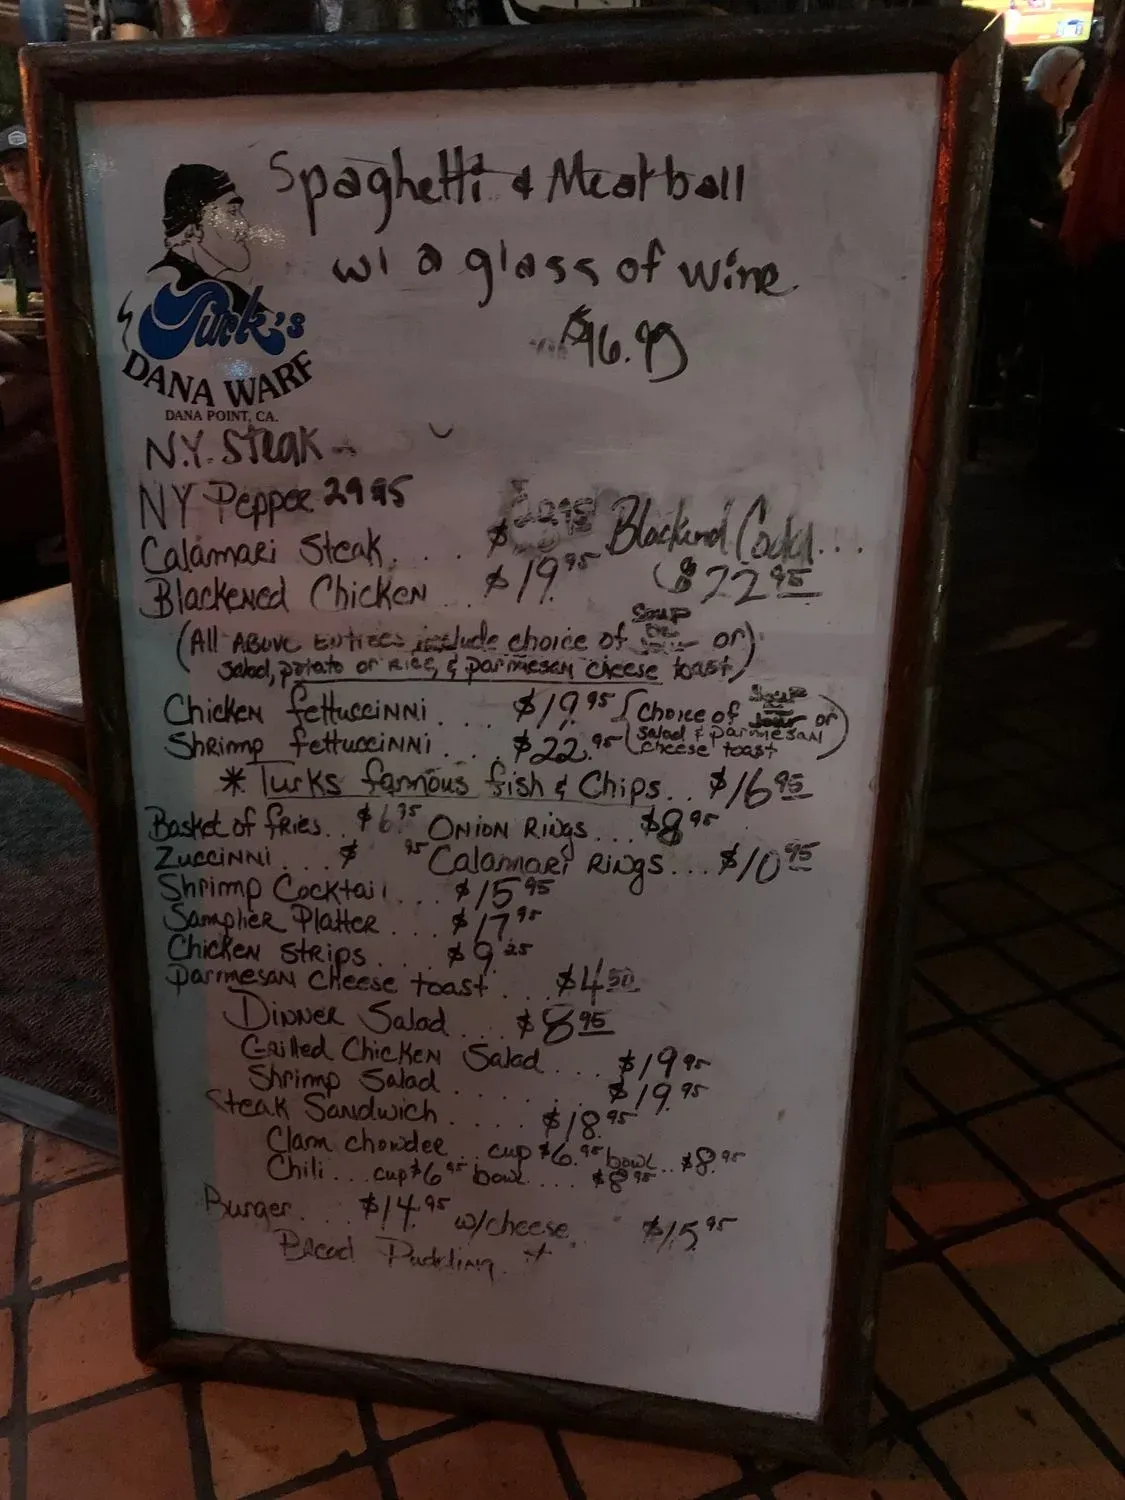 Spaghetti & Meatball
w/ a glass of wine.
Turk's
DANA WARF
DANA POINT, CA.
N.Y. Steak
NY Pepper 29 95
Calamari Steak. . . . $
Blackened
. . .
Blackened Chicken . . . $19.95 $22 95
(All Above Entrees include choice of Soup or
salad, potato or Rice, & parmesan cheese toast)
Chicken fettuccinni . . . . $19.95 (choice of Soup or
Shrimp fettuccinni . . . . $22.95 salad & parmesan
cheese toast)
* Turks fammous fish & Chips. . $16 95
Basket of fries. . . $6. Onion Rings . . . $8 95
Zuccinni . . . $ 95 Calamari Rings . . . $10 95
Shrimp Cocktail . . . $15 95
Sampler Platter . . . $17 95
Chicken strips. . . $9
Parmesan cheese toast . . . $4 50
Dinner Salad . . . $8 95
Grilled Chicken Salad . . . $19 95
Shrimp Salad . . . . . . . . $19. 95
Steak Sandwich . . . . . $18. 95
Clam chowder . . cup $6. 95 bowl . . $8. 95
Chili . . . cup $6 95 bowl . . . . $8 95
Burger . . . $14. 95 w/cheese. $15 95
Bread Pudding